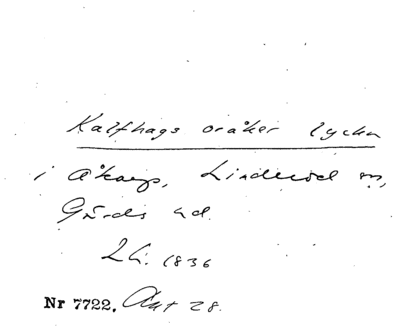 Kalfhags oråker lycka
i Åkarp, Linderöd sn,
Gärds hd.
Lh. 1836
Nr 7722. Akt 28.